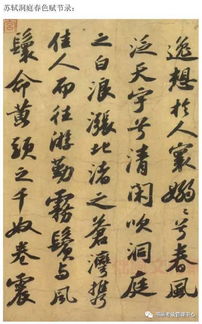 苏轼洞庭春色赋节录:
逸想於人寰嫋嫋兮春風
泛天宇兮清閑吹洞庭
之白浪漲北渚之蒼灣攜
佳人而往游勤霧鬢與風
鬟命黃頭之千奴卷震